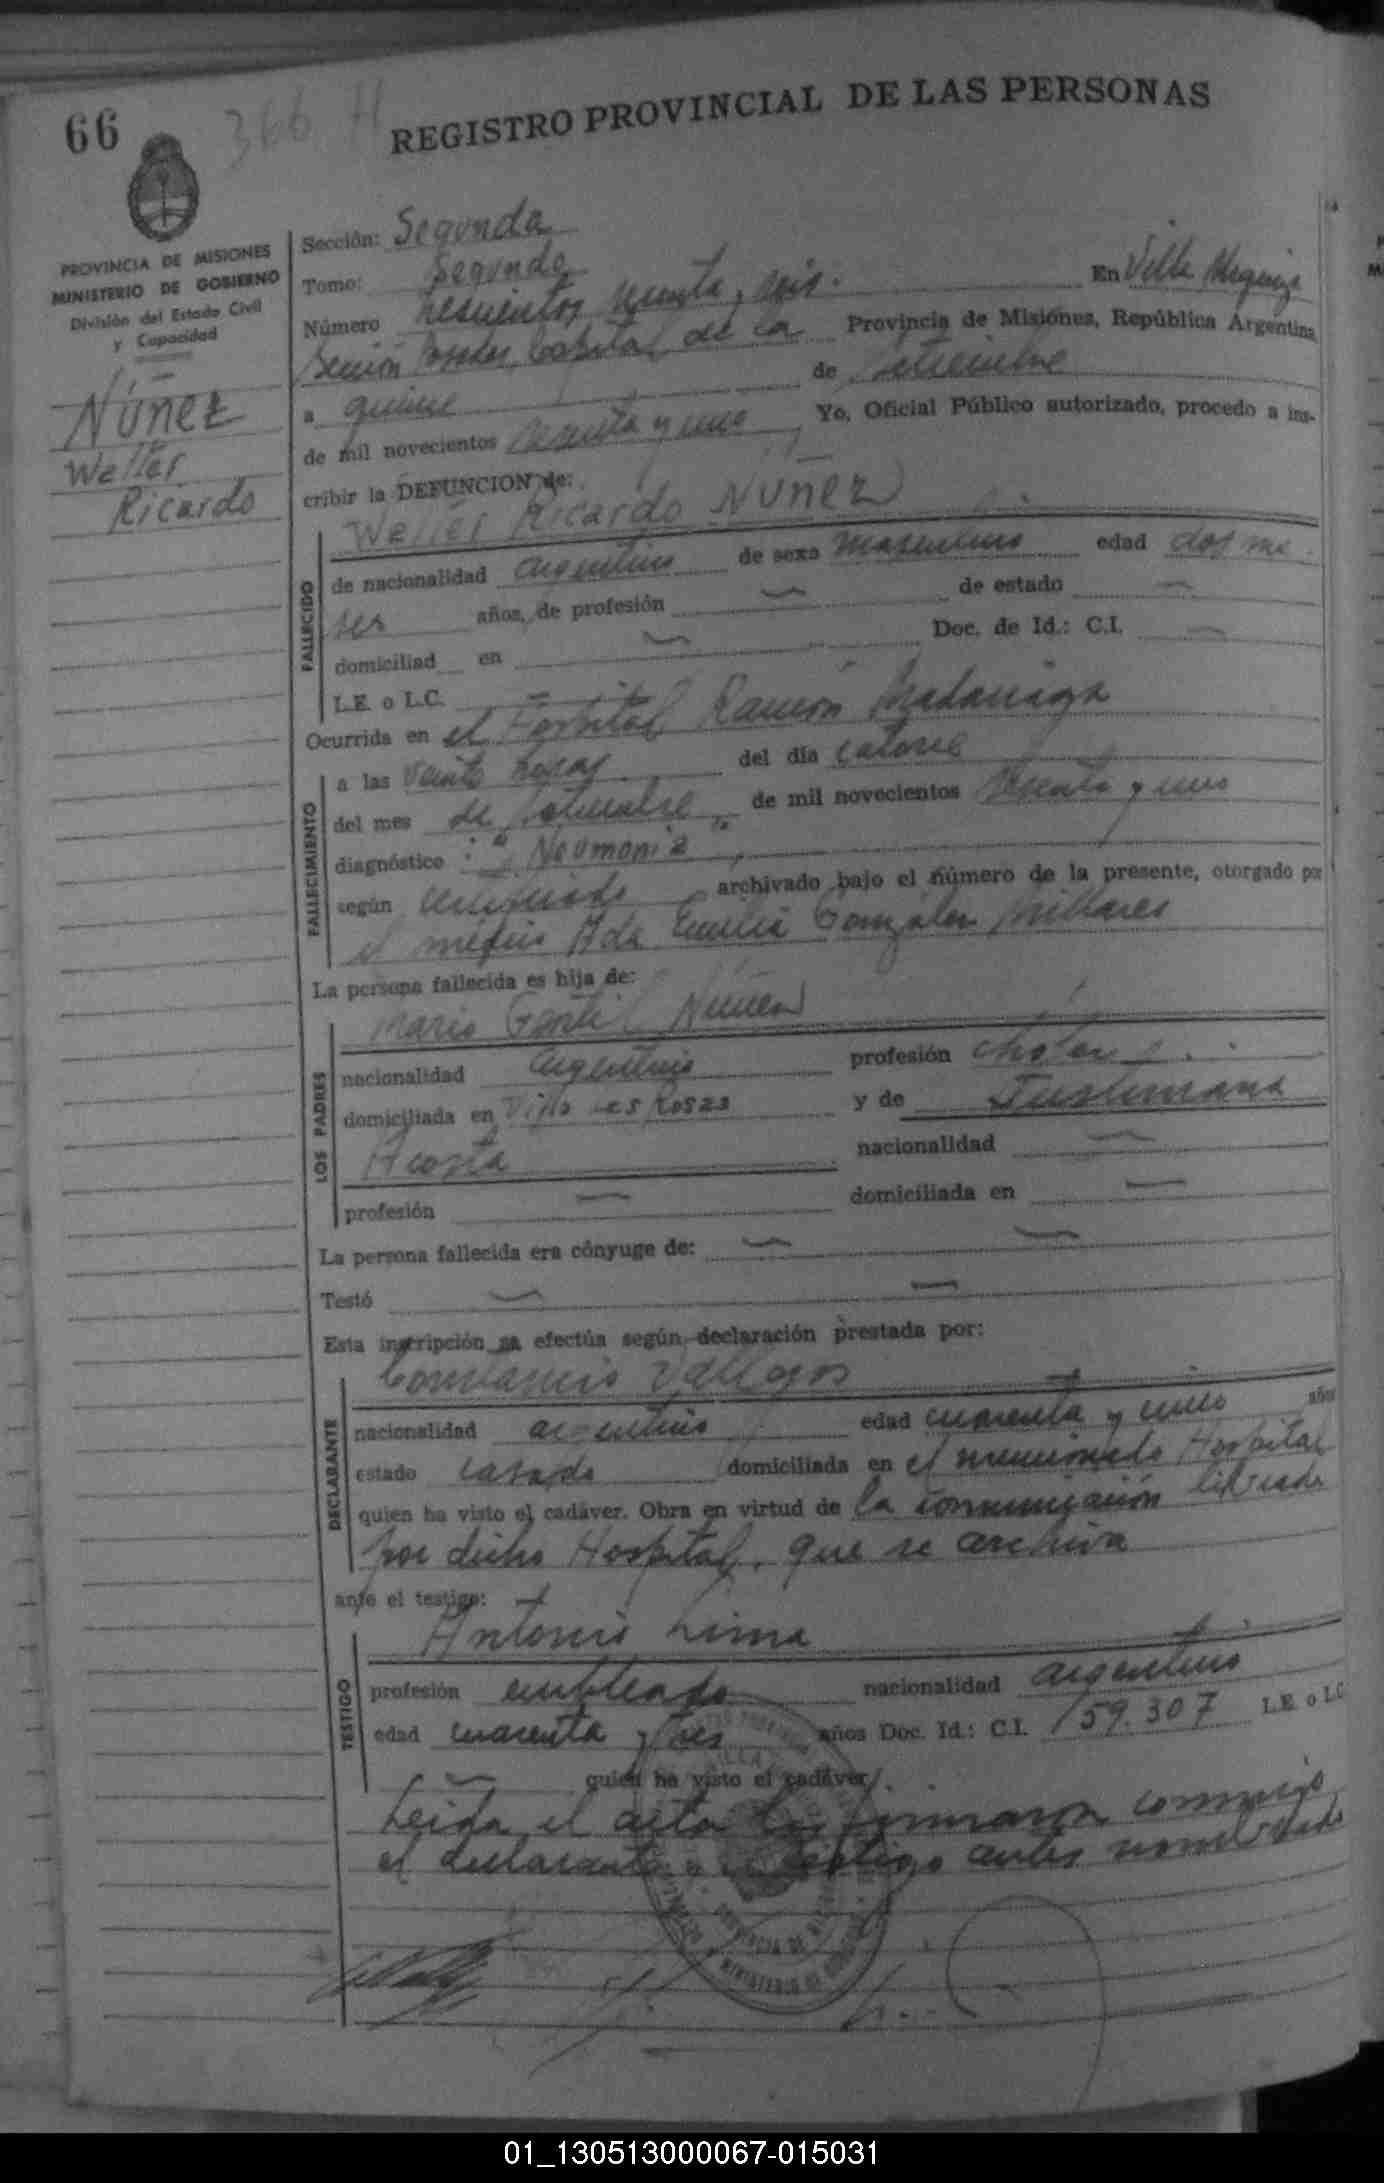 66
366 H
REGISTRO PROVINCIAL DE LAS PERSONAS
PROVINCIA DE MISIONES
MINISTERIO DE GOBIERNO
División del Estado Civil
y Capacidad
Núñez
Welter
Ricardo
Sección: Segunda
Tomo: Segundo
Número trescientos sesenta y seis. En Villa Urquiza
Sección Posadas Capital de la Provincia de Misiones, República Argentina
a quince de setiembre
de mil novecientos sesenta y uno Yo, Oficial Público autorizado, procedo a ins-
cribir la DEFUNCION de:
Welter Ricardo NÚÑEZ
FALLECIDO
de nacionalidad argentino de sexo masculino edad dos me
ses años, de profesión — de estado —
domiciliad en — Doc. de Id.: C.I. —
L.E. o L.C. —
Ocurrida en el Hospital Ramón Madariaga
FALLECIMIENTO
a las veinte horas del día catorce
del mes de setiembre de mil novecientos sesenta y uno
diagnóstico : "Neumonia"
según certificado archivado bajo el número de la presente, otorgado por
el médico Ada Emilia González Millares
La persona fallecida es hija de:
LOS PADRES
Mario Gentil Núñez
nacionalidad argentino profesión chofer
domiciliada en Villa Las Rosas y de Justiniana
Acosta nacionalidad —
profesión — domiciliada en —
La persona fallecida era cónyuge de: — —
Testó — —
Esta inscripción se efectúa según declaración prestada por:
DECLARANTE
Constancio Vallejos
nacionalidad argentino edad cuarenta y uno años
estado casado domiciliada en el mencionado Hospital
quien ha visto el cadáver. Obra en virtud de la comunicación librada
por dicho Hospital, que se archiva
ante el testigo:
TESTIGO
Antonio Lima
profesión empleado nacionalidad argentino
edad cuarenta y tres años Doc. Id.: C.I. 159.307 L.E. o L.C
— quien ha visto el cadáver.
Leida el acta la firmaron conmigo
el declarante y el testigo antes nombrado
01_130513000067-015031